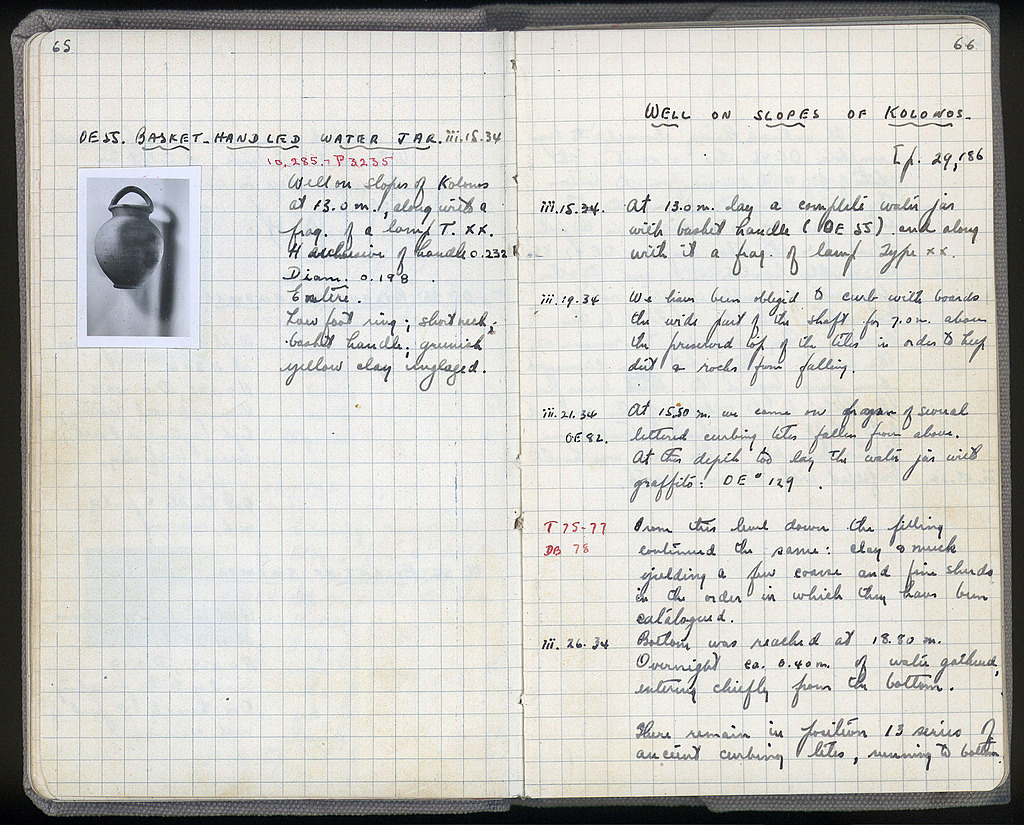 65
OE 55. BASKET-HANDLED WATER JAR. iii.15.34
10.285.-P 3235
Well on slopes of Kolonos
at 13.0 m., along with a
frag. of a lamp T. XX.
H exclusive of handle 0.232
Diam. 0.198.
Entire.
Low foot ring; short neck;
basket handle; greenish
yellow clay unglazed.
66
WELL ON SLOPES OF KOLONOS.
[p. 29, 186
iii.15.34. At 13.0 m. lay a complete water jar
with basket handle (OE 55) and along
with it a frag. of lamp Type XX.
iii.19.34 We have been obliged to curb with boards
the wide part of the shaft for 7.0 m. above
the preserved top of the tiles in order to keep
dirt & rocks from falling.
iii.21.34 At 15.50 m. we came on fragm of several
OE 82. lettered curbing tiles fallen from above.
At this depth too lay the water jar with
graffito: OE 129.
T 75-77 From this level down the filling
DB 78 continued the same: clay & muck
yielding a few coarse and fine sherds
in the order in which they have been
catalogued.
iii.26.34 Bottom was reached at 18.80 m.
Overnight ca. 0.40 m. of water gathered,
entering chiefly from the bottom.
There remain in position 13 series of
ancient curbing tiles, running to bottom.